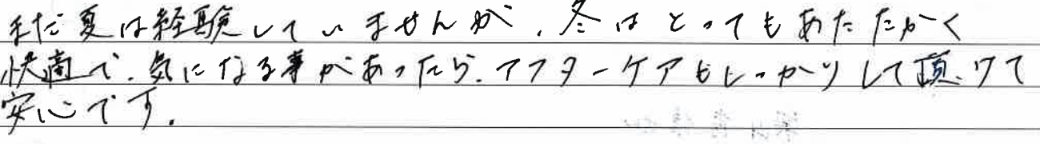 まだ夏は経験していませんが、冬はとってもあたたかく
快適で、気になる事があったら、アフターケアもしっかりして頂けて
安心です。